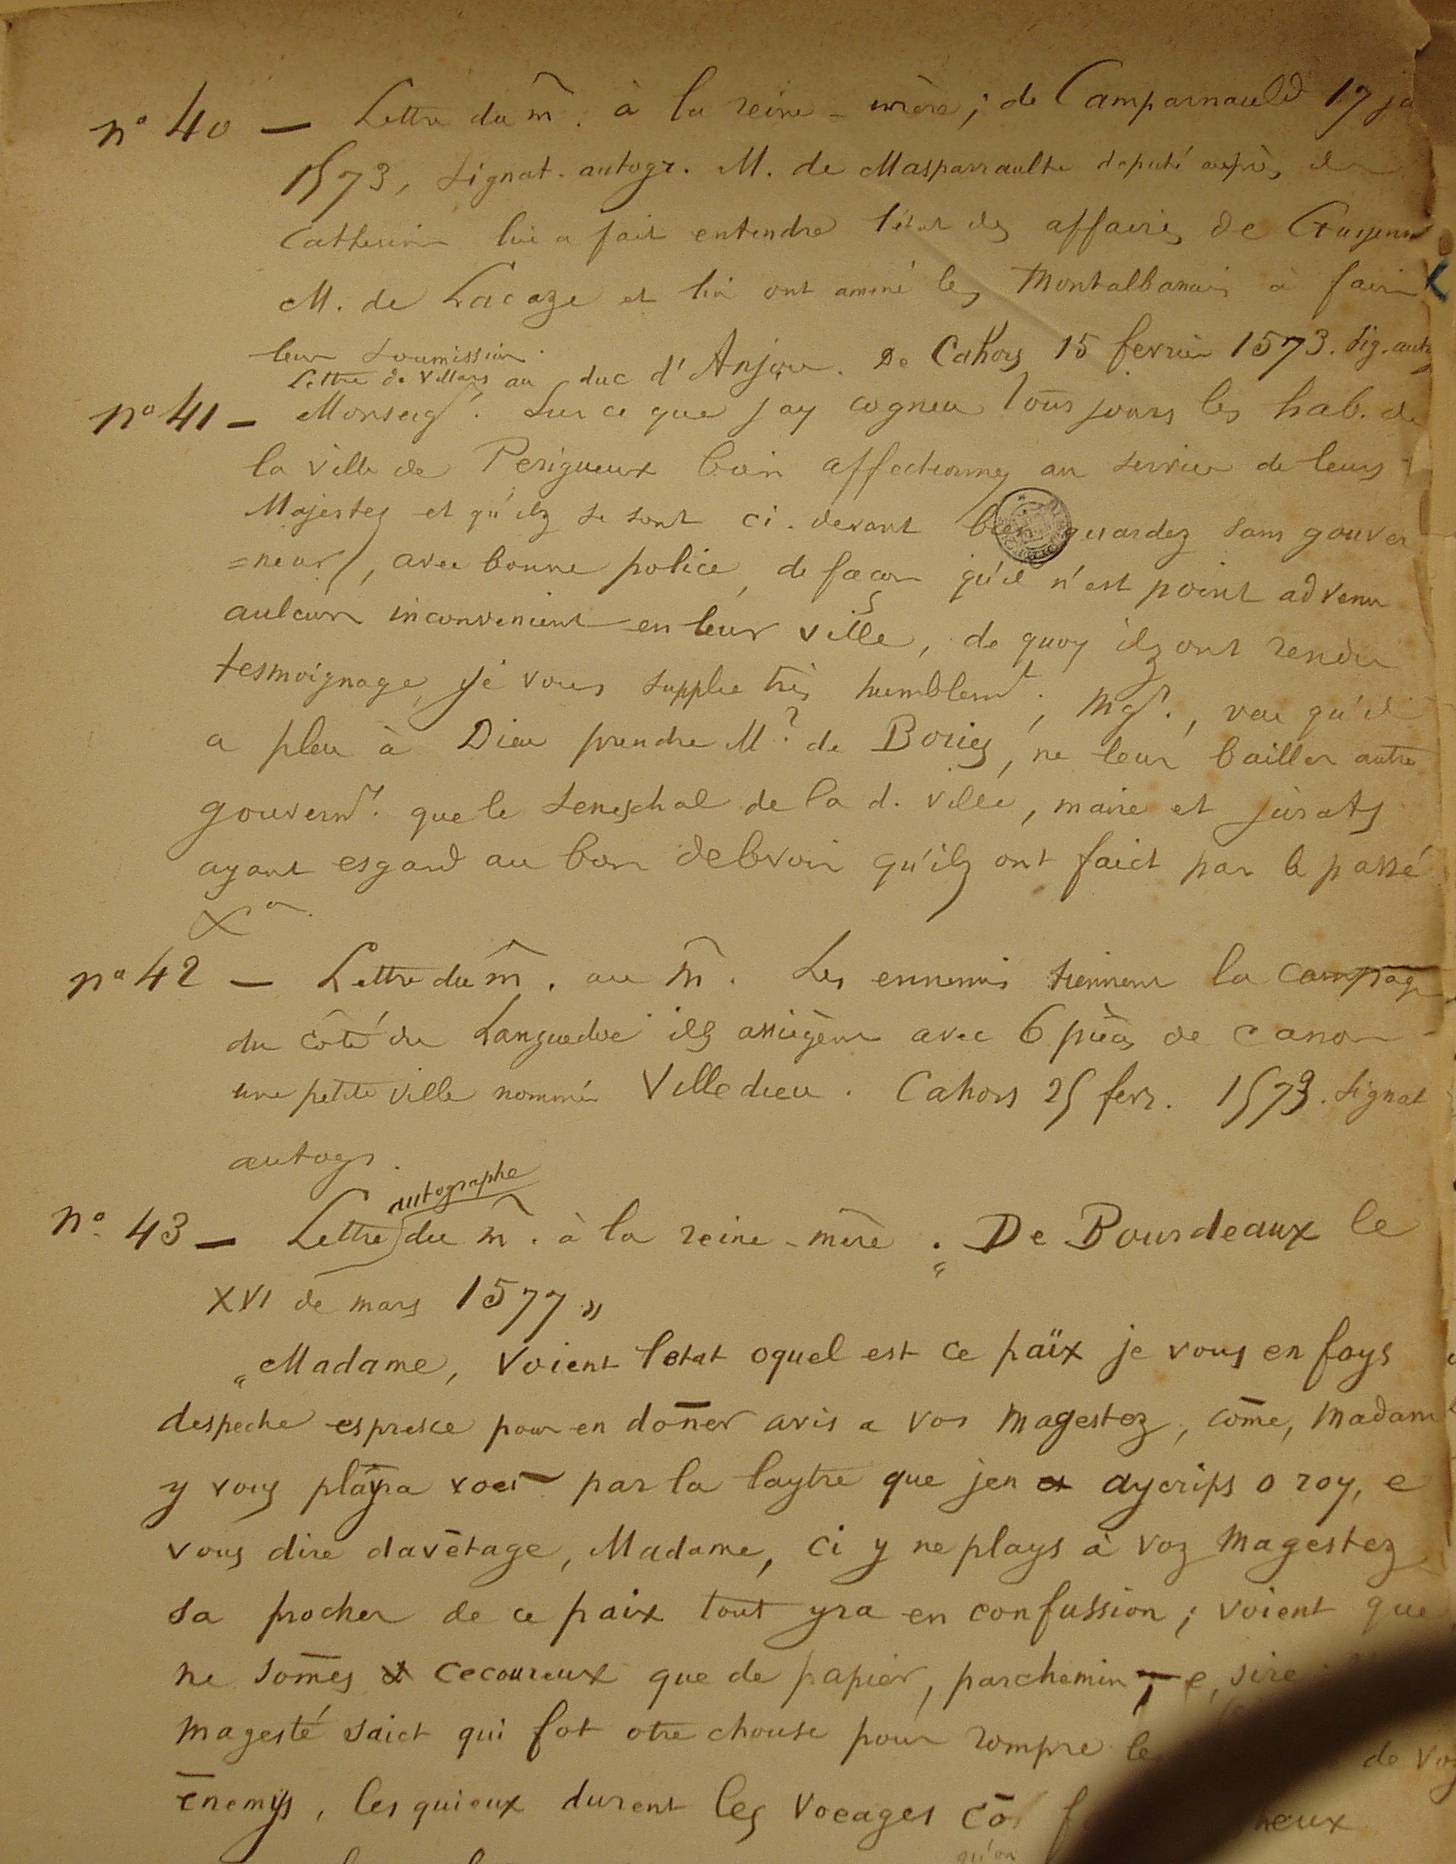 n° 40 — Lettre du m̂. à la reine-mère; de Camparnauld 17 ja
1573, signat. autogr. M. de Masparraulte deputé auprès de
Catherine lui a fait entendre l'état des affaires de Guyenne
M. de Lacaze et lui ont amené les Montalbanais à faire
leur soumission.
Lettre de Villars au duc d'Anjou. De Cahors 15 fevrier 1573. Sig. aut
n° 41 — Monseigr. Sur ce que j'ay cogneu tousjours les hab. de
la ville de Perigueux bien affectionnez au service de leurs
Majestez et qu'ilz se sont ci-devant bien guardez sans gouver
=neur, avec bonne police, de façon qu'il n'est point advenu
aulcun inconvenient en leur ville, de quoy ilz ont rendu
tesmoignage, je vous supplie très humblemt., Mgr., veu qu'il
a pleu à Dieu prendre Mr de Bories, ne leur bailler autre
gouvernr. que le seneschal de la d. ville, maire et jurats
ayant esgard au bon debvoir qu'ilz ont faict par le passé
n° 42 — Lettre du m̂. au m̂. Les ennemis tiennent la campagn
du côté du Languedoc ils assiègent avec 6 pièces de canon
une petite ville nommée Villedieu. Cahors 25 fevr. 1573. Signat
autogr.
autographe
n° 43 — Lettre du m̂. à la reine-mère. "De Bourdeaux le
XVI de mars 1577"
"Madame, Voient letat oquel est ce païx je vous en foys
despeche espresce pour en dōner avis a vos magestez, cōme, Madam
y vous playra voer par la laytre que jen ay crips o roy, e
vous dire davētage, Madame, ci y ne plays à voz magestez
sa procher de ce paix tout yra en confussion; voient que
ne somēs cecoureux que de papier, parchemin, e, sire
magesté saict qui fot otre chouse pour rompre de voz
ēnemys, les quieux durent les voeages cō
qu'on